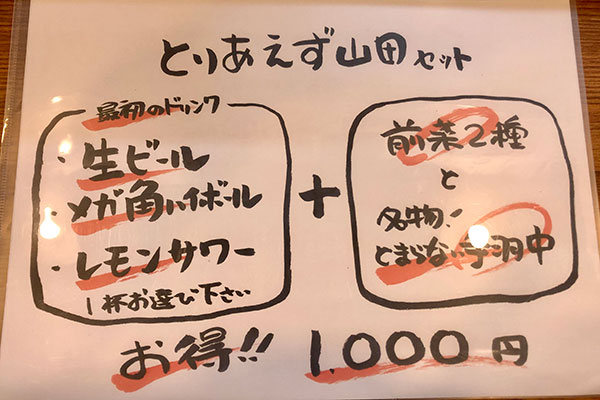 とりあえず山田セット
最初のドリンク
・生ビール
・メガ角ハイボール
・レモンサワー
1杯お選び下さい
+
前菜2種
と
名物!
とまらない手羽中
お得!! 1.000円